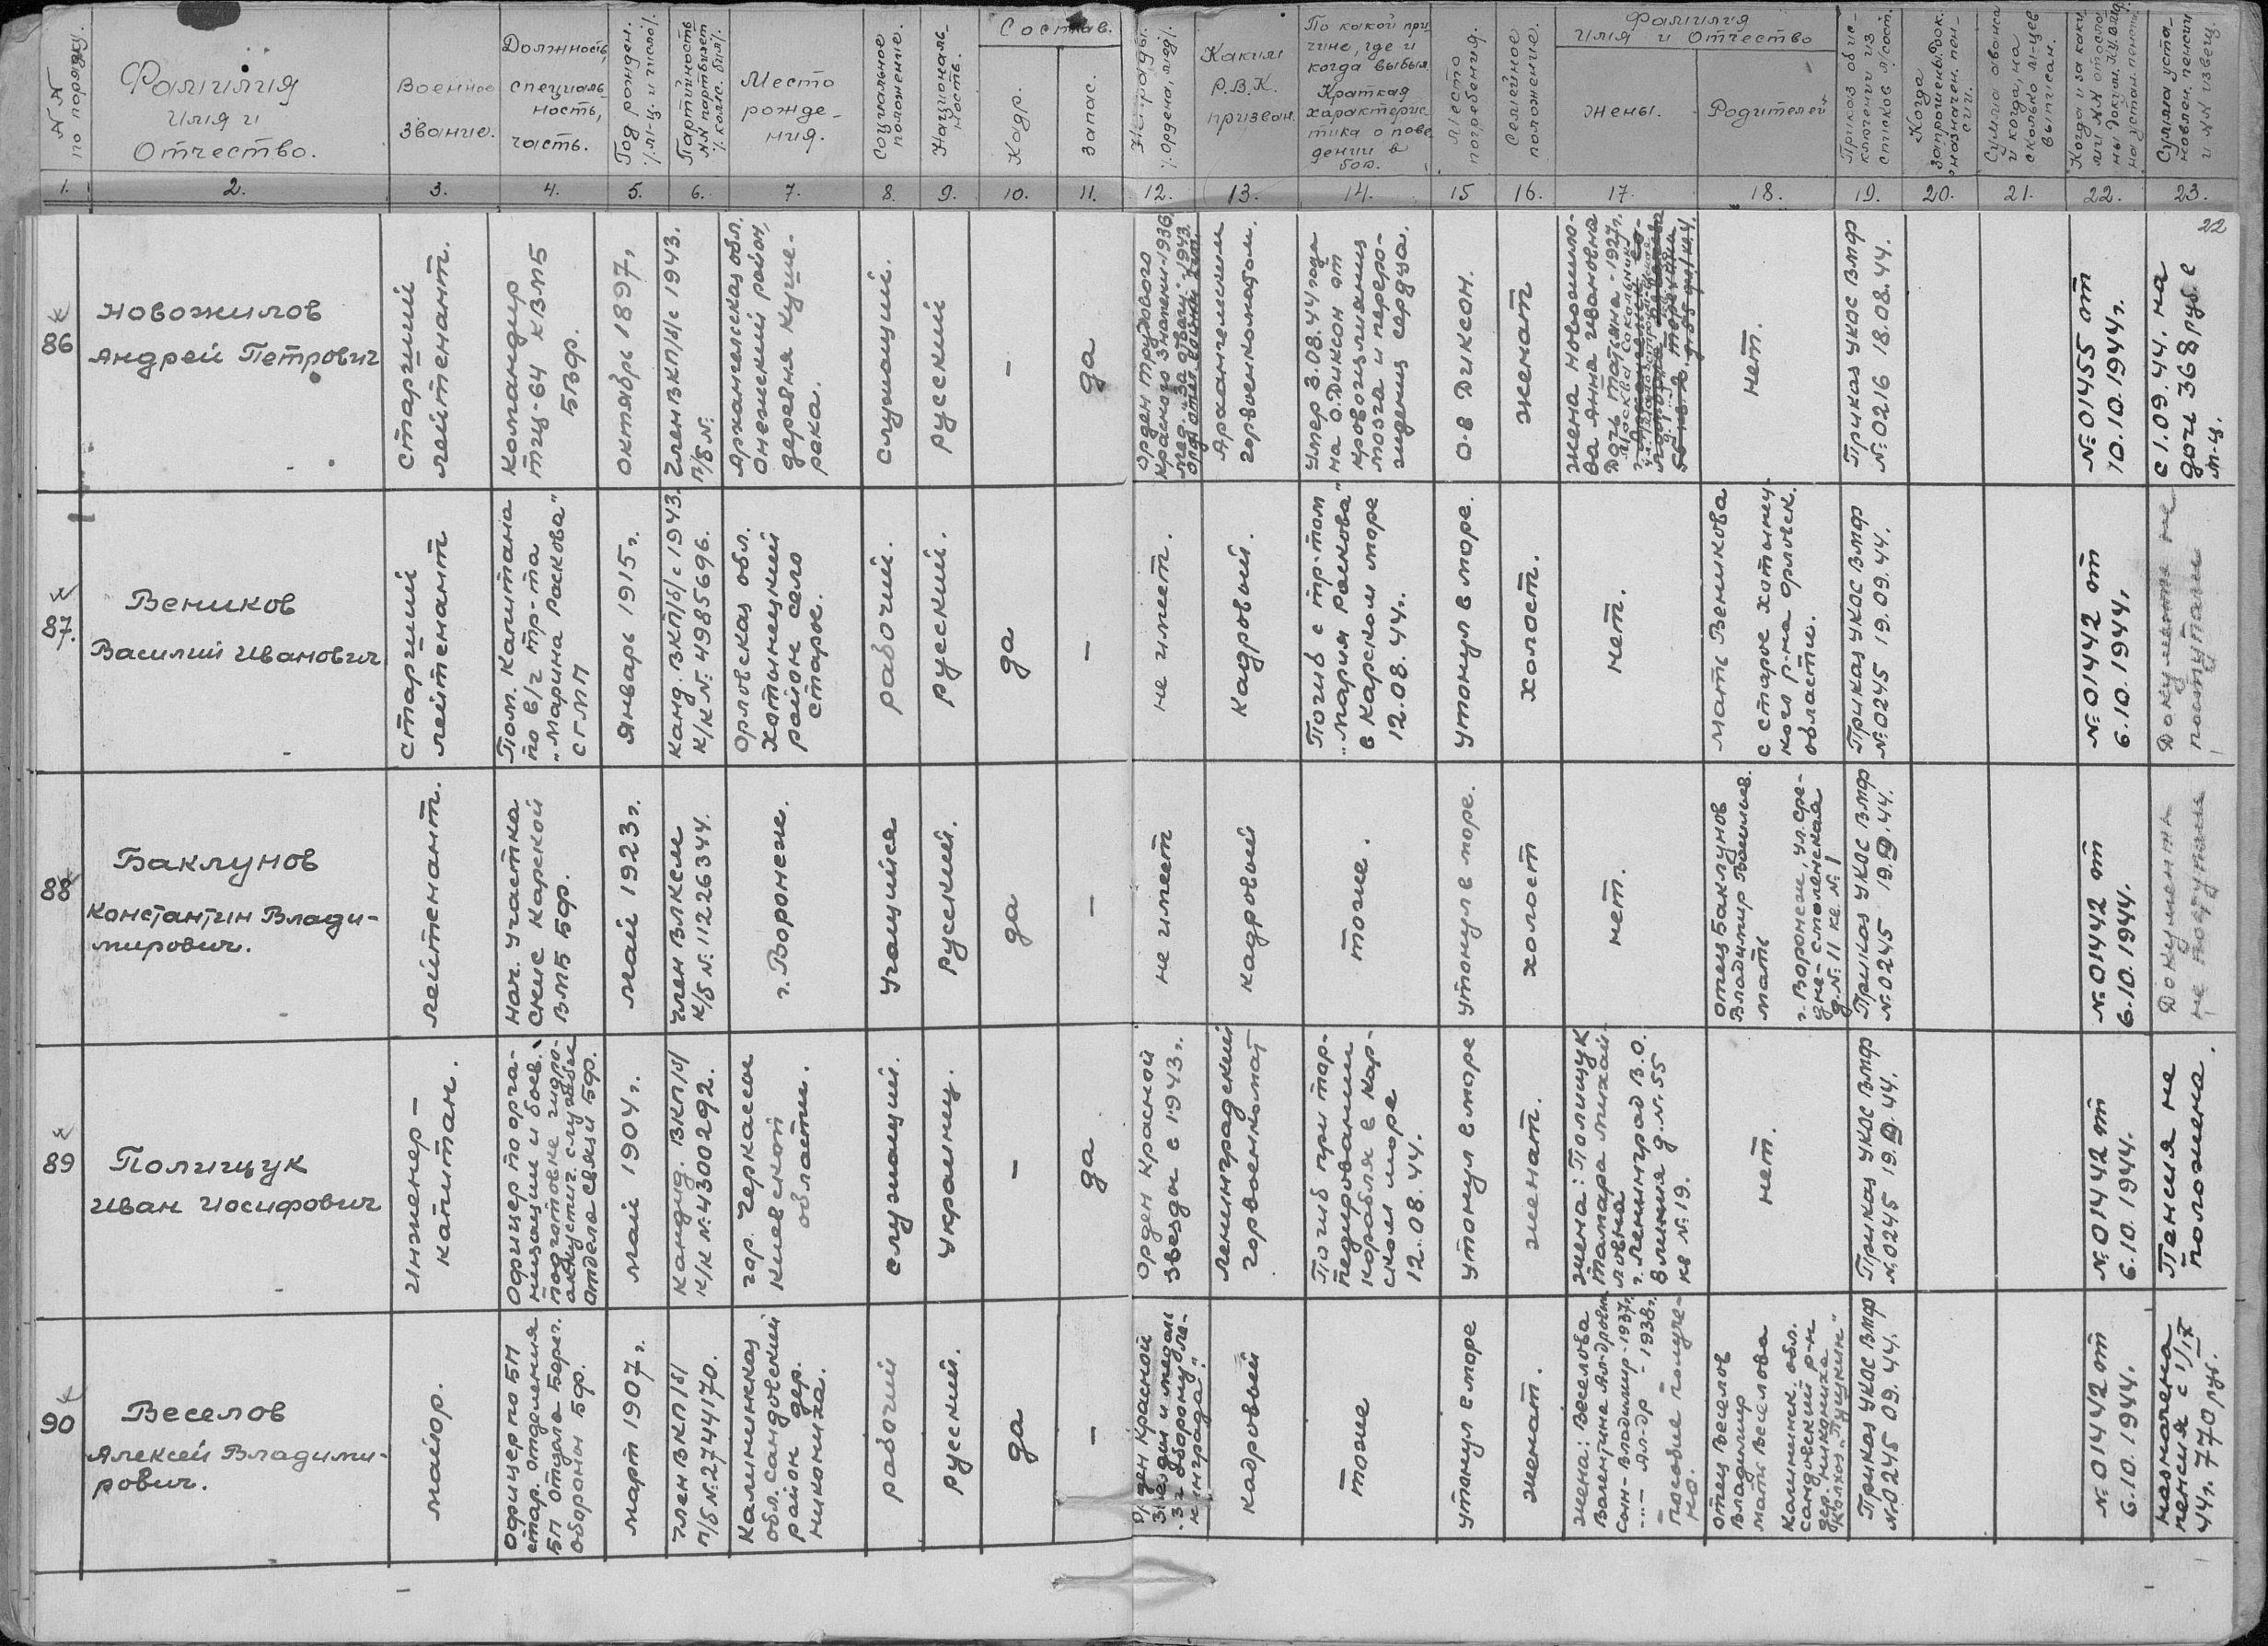 N N
по порядку.
Фамилия
имя и
Отчество.
Военное
звание.
Должность,
специаль-
ность,
часть.
Год рожден.
/м-ц. и число/.
Партийность
N.N партбилет.
/. комс. бил/.
Место
рожде-
ния.
Социальное
положение.
Националь-
ность.
Состав.
Кадр.
запас.
Награды.
/Ордена, мед/.
Каким
Р.В.К.
призван.
По какой при-
чине, где и
когда выбыл.
Краткая
характерис-
тика о пове-
дении в
бою.
Место
погребения.
Семейное
положение.
Фамилия
имя и Отчество
жены.
Родителей
Приказ об ис-
ключении из
списков л/сост.
Когда
запрошены док.
назначен. пен-
сии.
Сумма аванса
и когда, на
сколько м-цев
выписан.
Когда и за каки-
ми NN отосла-
ны докум.
на устан. пенсии.
Сумма уста-
новлен. пенсии
и NN извещ.
1.
2.
3.
4.
5.
6.
7.
8.
9.
10.
11.
12.
13.
14.
15
16.
17
18.
19.
20.
21.
22.
23.
22
86
Новожилов
Андрей Петрович
старший
лейтенант.
Командир
тщ-64 КВМБ
БВФ.
октябрь 1897г.
Член ВКП/б/ с 1943.
п/б N:
Архангельская обл.
Онежский район,
деревня Куше-
река.
служащий.
русский
–
да
Орден трудового
красного знамени-1936
мед. "За отвагу"-1943.
орд. отеч. войны
Архангельским
горвоенкоматом.
умер 3.08.44 года
на о.Диксон от
кровоизлияния
мозга и перерож-
дения сердца.
о-в Диксон.
женат
жена Новожило-
ва Анна Ивановна
Дочь Татьяна-1927г.
нет.
Приказ УКОС ВМФ
N: 0216 18.08.44.
N: 01455 от
10.10.1944г.
с 1.09.44. на
дочь 368 руб. в
м-ц.
87.
Веников
Василий Иванович
старший
лейтенант
Пом. Капитана
по в/ч тр-та
„Марина Раскова"
СГМП
Январь 1915г.
Канд. ВКП/б/ с 1943.
К/К N: 4985696.
Орловская обл.
Хотынецкий
район село
Старое.
рабочий.
русский.
да
–
не имеет.
Кадровый.
Погиб с тр-том
„Мария Раскова"
в Карском море
12.08.44г.
утонул в море.
холост.
нет.
мать Веникова
с Старое Хотынец-
кого р-на Орловск.
области.
Приказ УКОС ВМФ
N: 0245 19.09.44.
N: 01442 от
6.10.1944г.
Документы не
поступали
88
Баклунов
Константин Влади-
мирович.
лейтенант.
нач. участка
СНиС Карской
ВМБ БФ.
май 1923г.
член ВЛКСМ
К/б N: 11226344.
г. Воронеж.
учащийся
русский.
да
–
не имеет
кадровый
тоже.
утонул в море.
холост
нет.
отец Баклунов
Владимир
мать
г. Воронеж, ул. Сре-
дне-Смоленская
д. N: 11 кв. N: 1
Приказ УКОС ВМФ
N: 0245 19.9.44.
N: 01442 от
6.10.1944.
Документы
не поступали
89
Полищук
Иван Иосифович
Инженер-
капитан.
Офицер по орга-
низации и боев.
подготовке гидро-
акустич. службы
отдела связи БФ.
май 1904г.
Кандид. ВКП/б/
К/К N: 4300292.
гор. Черкассы
Киевской
области.
служащий.
Украинец.
–
да
Орден Красной
звезды в 1943г.
Ленинградский
горвоенкомат
Погиб при тор-
педировании
корабля в Кар-
ском море
12.08.44.
утонул в море
женат.
жена: Полищук
Тамара Михай-
ловна
г. Ленинград В.О.
8 линия д. N: 55
кв N: 19.
нет.
Приказ УКОС ВМФ
N: 0245 19.9.44.
N: 01442 от
6.10.1944.
Пенсия не
положена.
90
Веселов
Алексей Владими-
рович.
майор.
Офицер по БП
стар. отделения
БП отдела берег.
обороны БФ.
март 1907г.
член ВКП/б/
п/б N: 2744170.
Калининская
обл. Сандовский
район дер.
Никониха.
рабочий
русский.
да
–
Орден Красной
звезды и медаль
„За оборону Ле-
нинграда".
кадровый
тоже
утонул в море
женат.
жена: Веселова
Валентина Ал-дровн.
сын-Владимир-1937г.
--- Ал-др - 1938г.
Пособие получе-
но.
Отец Веселов
Владимир
мать Веселова
Калининск. обл.
Сандовский р-н
дер. Никониха
Колхоз „Пушкин"
Приказ УКОС ВМФ
N: 0245 09.44.
N: 01442 от
6.10.1944.
назначена
пенсия с 1/IX
44г. 770 руб.